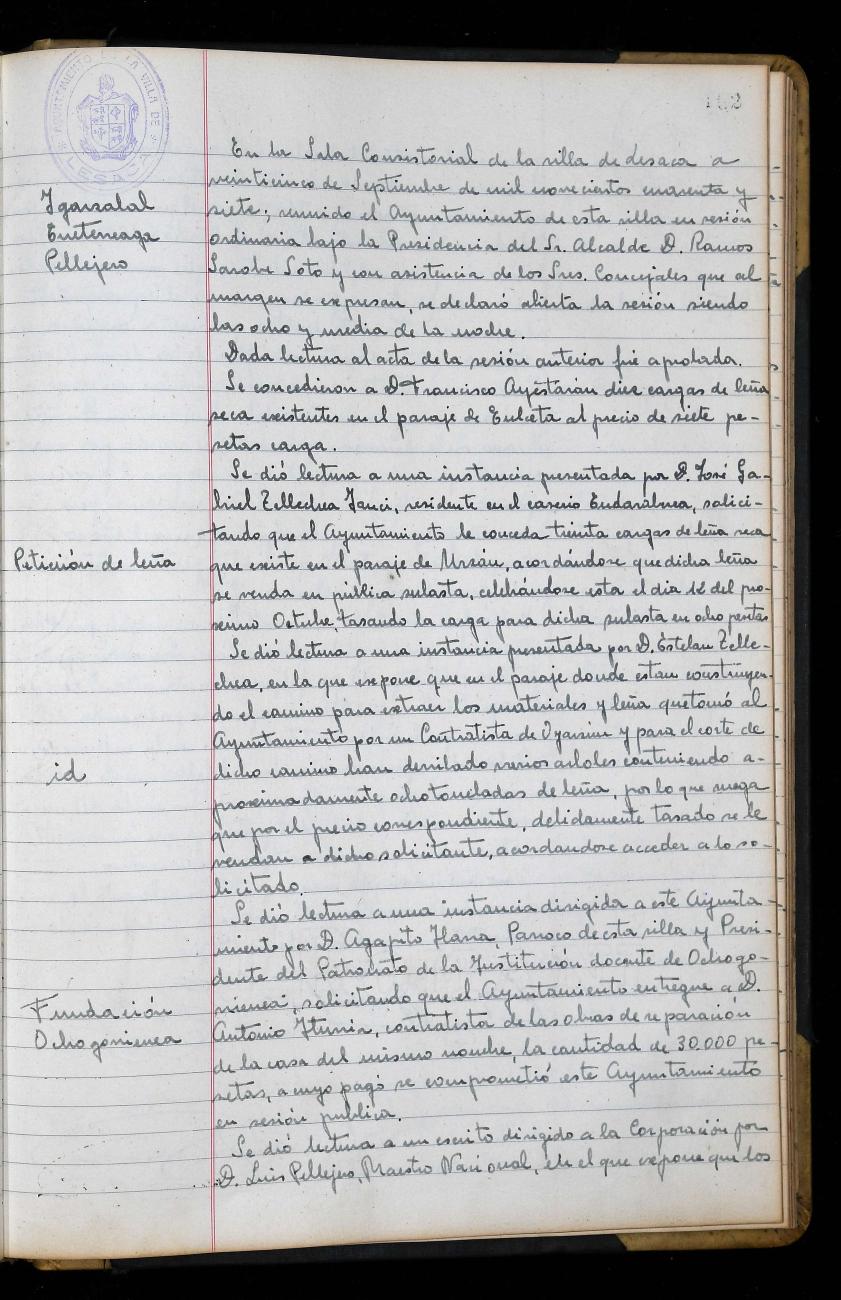 AYUNTAMIENTO DE LA VILLA DE
LESACA
Igarzabal
Eneteneaga
Pellejero
En la Sala Consistorial de la villa de Lesaca a
veinticinco de Septiembre de mil novecientos cuarenta y
siete; reunido el Ayuntamiento de esta villa en sesión
ordinaria bajo la Presidencia del Sr. Alcalde D. Ramos
Sarobe Soto y con asistencia de los Sres. Concejales que al
margen se expresan, se declaró abierta la sesión siendo
las ocho y media de la noche.
Dada lectura al acta de la sesión anterior fué aprobada.
Se concedieron a D. Francisco Ayestarán diez cargas de leña
seca existentes en el paraje de Eulceta al precio de siete pe-
setas carga.
Se dió lectura a una instancia presentada por D. José Ga-
briel Tellechea Yanci, residente en el caserio Endarabnea, solici-
tando que el Ayuntamiento le conceda treinta cargas de leña seca
Petición de leña
que existe en el paraje de Urzán, acordándose que dicha leña
se venda en pública subasta, celebrándose esta el dia 12 del pro-
ximo Octubre, tasando la carga para dicha subasta en ocho pesetas
Se dió lectura a una instancia presentada por D. Esteban Telle-
chea, en la que expone que en el paraje donde estan construyen-
do el camino para extraer los materiales y leña que tomó al
Ayuntamiento por un Contratista de Oyarzun y para el corte de
id
dicho camino han derribado varios arboles conteniendo a-
proximadamente ocho toneladas de leña, por lo que ruega
que por el precio correspondiente, debidamente tasado se le
vendan a dicho solicitante, acordandose acceder a lo so-
licitado.
Se dió lectura a una instancia dirigida a este Ayunta-
miento por D. Agapito Ilarra, Parroco de esta villa y Presi-
dente del Patronato de la Institución docente de Ochogo-
Fundación
Ochogorrienea
rrienea, solicitando que el Ayuntamiento entregue a D.
Antonio Iturria, contratista de las obras de reparación
de la casa del mismo nombre, la cantidad de 30.000 pe-
setas, a cuyo pago se comprometió este Ayuntamiento
en sesión publica.
Se dió lectura a un escrito dirigido a la Corporación por
D. Luis Pellejero, Maestro Nacional, en el que expone que los